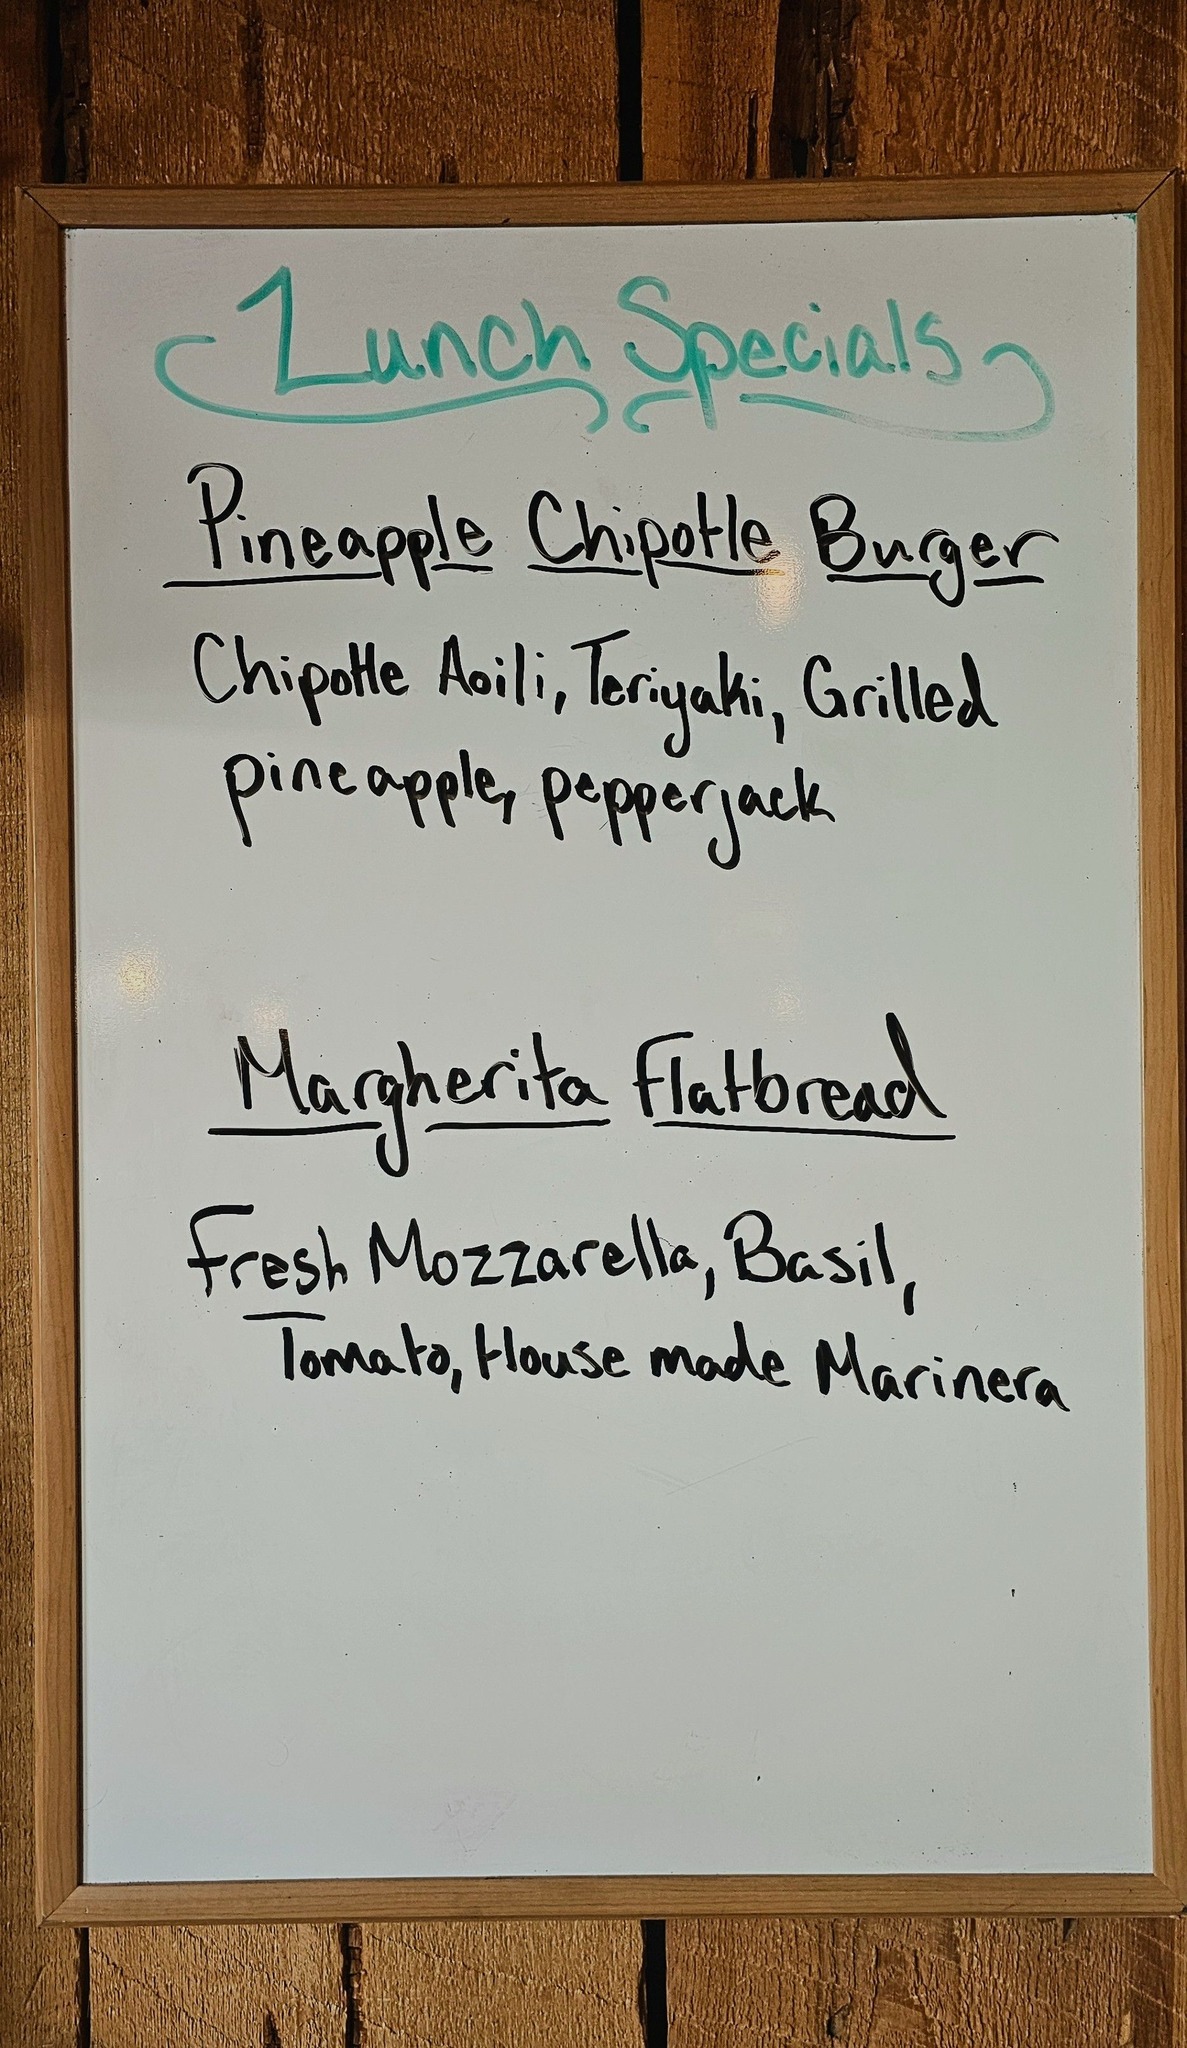 Lunch Specials
Pineapple Chipotle Burger
Chipotle Aoili, Teriyaki, Grilled
pineapple, pepperjack
Margherita Flatbread
Fresh Mozzarella, Basil,
Tomato, House made Marinera